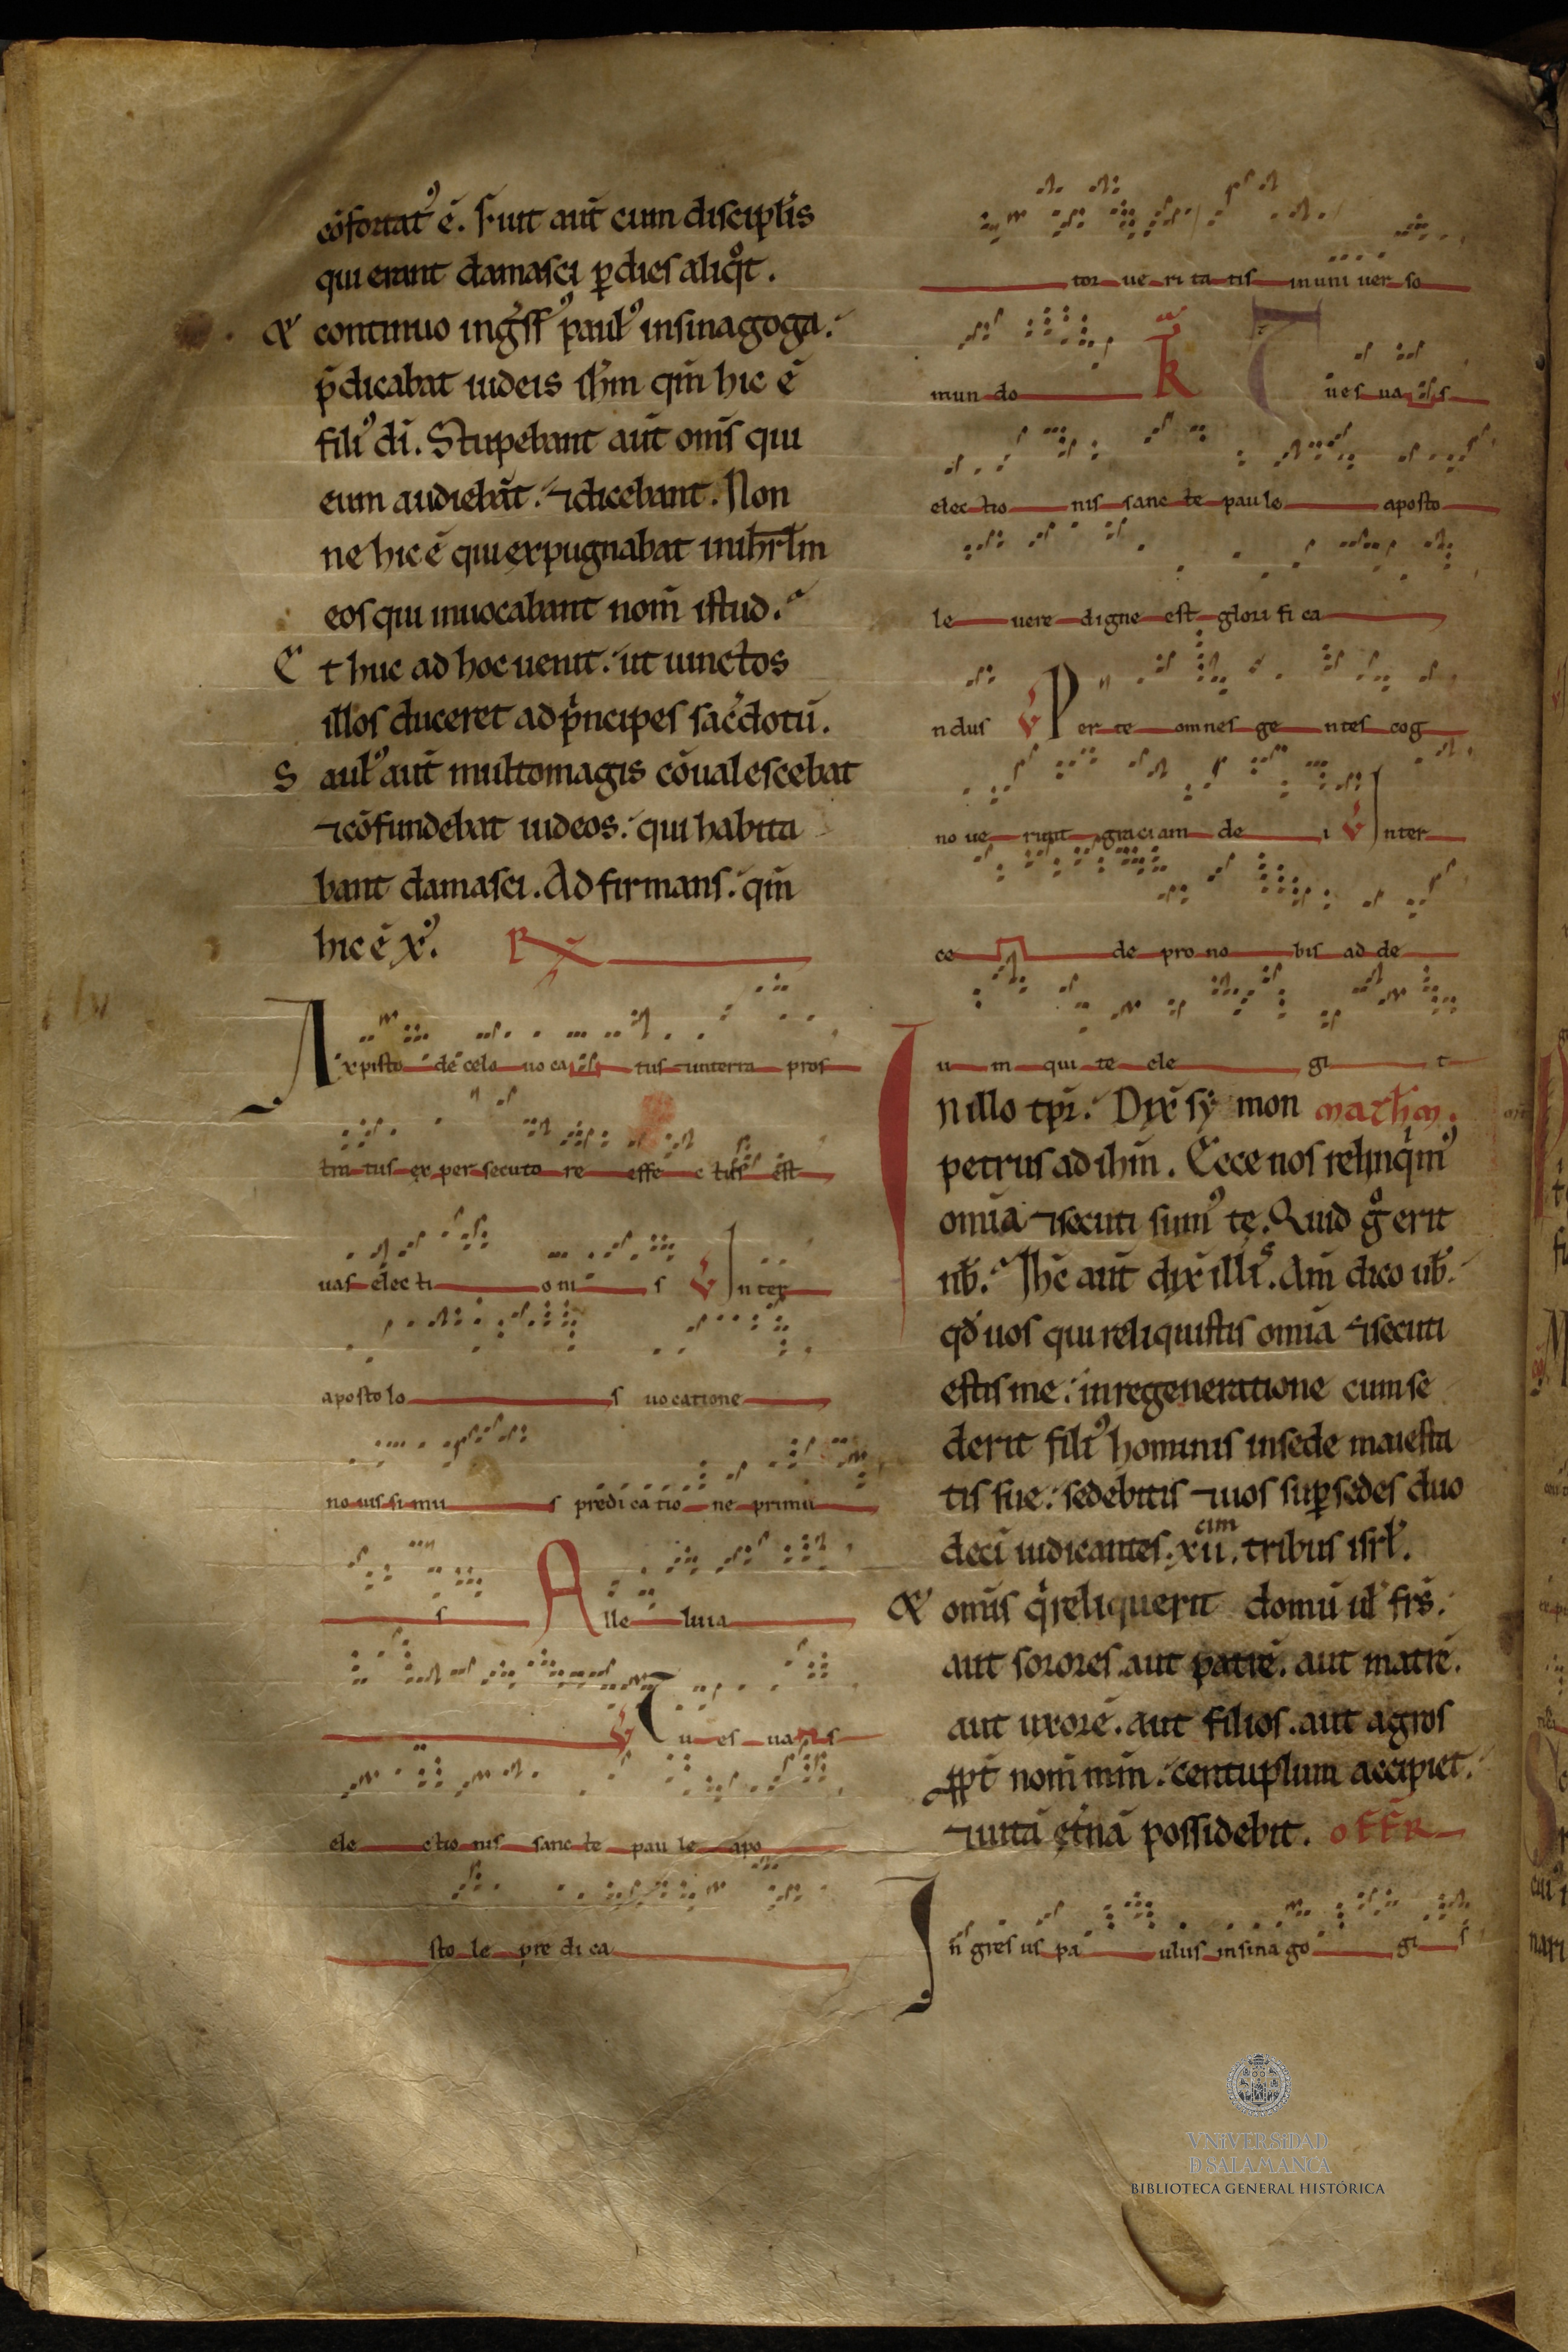 cōfortat᾽ ē. Fuit aut̄ cum discipłis
qui erant damasci ꝑ dies aliqͦt.
Et continuo ing̃ss᾽ paul᾽ in sinagoga.
p̄dicabat iudeis ihm̄ qm̄ hic ē
fili᾽ dī. Stupebant aut̄ om̄s qui
eum audiebāt. ⁊ dicebant. Non
ne hic ē qui expugnabat in ihrłm
eos qui inuocabant nom̄ istud.
Et huc ad hoc uenit. ut uinctos
illos duceret ad pⁱncipes sac̃dotū.
Saul᾽ aut̄ multo magis cōualescebat
⁊ cōfundebat iudeos. qui habita
bant damasci. Adfirmans. qm̄
hic ē xp᾽.
A xpisto de celo uo ca tus ⁊ in terra pros
tra tus ex per secuto re effe c tus est
uas elec ti o ni s V In ter
aposto lo s uocatione
no uis si mu s predi ca tio ne primu
s A lle luia
V Tu es uas
ele ctio nis sanc te pau le apo
sto le pre di ca
tor ue ri ta tis in uni uer so
mun do Tu es uas
elec tio nis sanc te pau le aposto
le uere digne est glori fi ca
ndus V Per te omnes ge ntes cog
no ue runt graciam de i V Inter
ce de pro no bis ad de
u m qui te ele gi t
In illo tp̄r. Dix̄ sy mon math̄m.
petrus ad ihm̄. Ecce nos relinqⁱm᾽
omīa ⁊ secuti sum᾽ te. Quid gͦ erit
nb̄. Ihc̄ aut̄ dix̄ illis. Am̄ dico ub̄.
qđ uos qui reliquistis omīa ⁊ secuti
estis me. in regeneratione cum se
derit fili᾽ hominis in sede maiesta
tis sue. sedebitis ⁊ uos suꝑ sedes duo
decī iudicantes. xii.cim tribus isrł.
Et om̄is qⁱ reliquerit domū uł frs̄.
aut sorores. aut patrē. aut matrē.
aut uxorē. aut filios. aut agros
ꝓpt̄ nom̄ mm̄. centuplum accipiet.
⁊ uitā et̄nā possidebit. OFFR
In gres us pa ulus in sina go gi s
VNiVERSiDAD
D SALAMANCA
BIBLIOTECA GENERAL HISTÓRICA